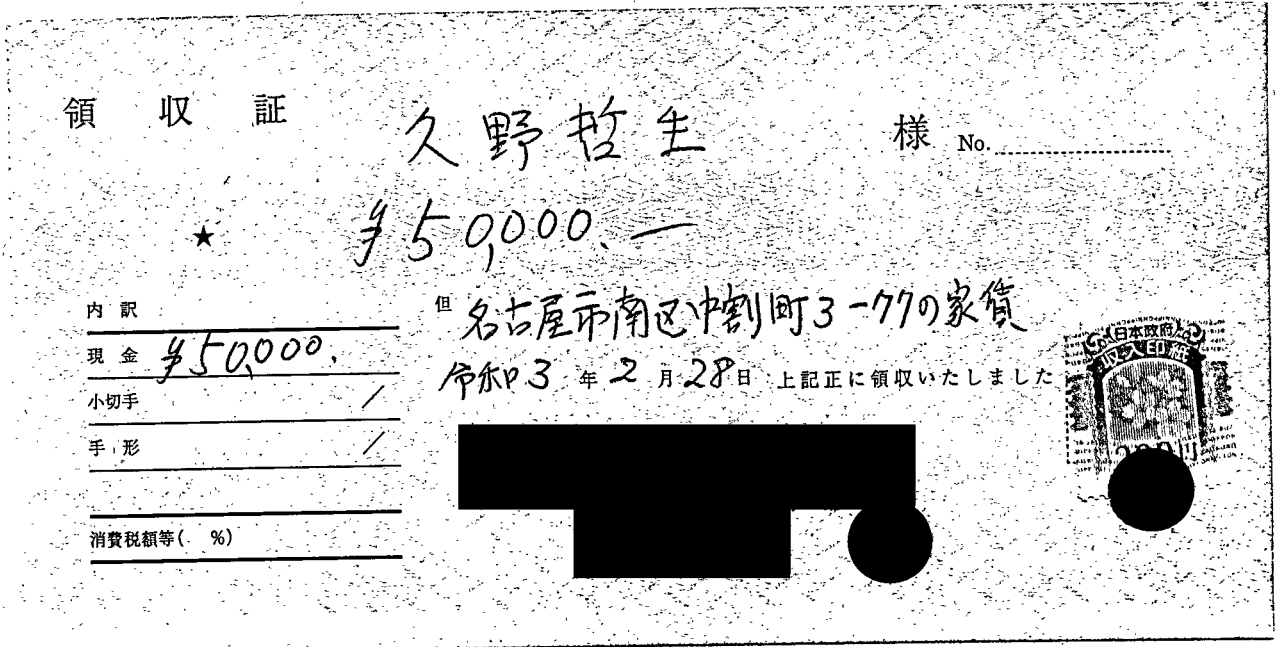 領収証 久野哲生 様 No.
★ ¥50,000.—
内訳
現金 ¥50,000.
小切手 /
手形 /
消費税額等( %)
但 名古屋市南区中割町3-77の家賃
令和3年2月28日 上記正に領収いたしました
日本政府
収入印紙